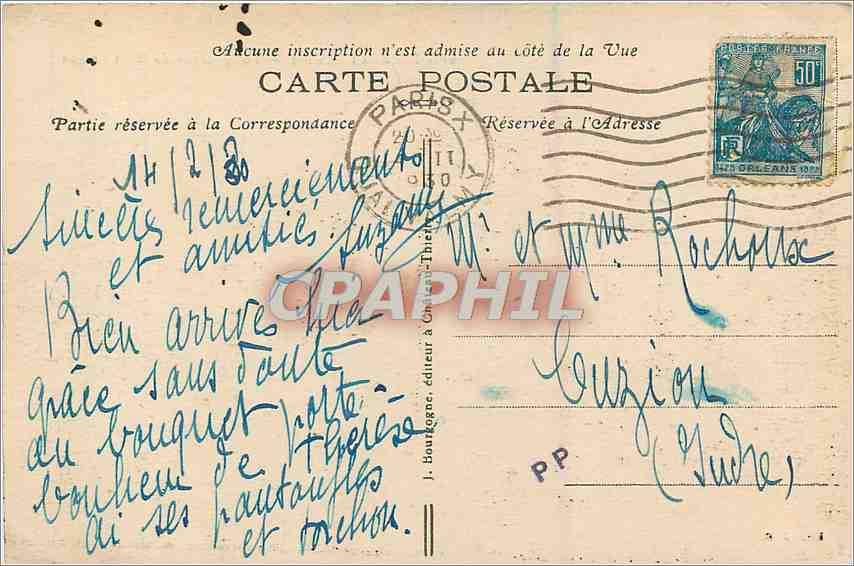 Aucune inscription n'est admise au côté de la Vue
CARTE POSTALE
Partie réservée à la Correspondance
Réservée à l'Adresse
PARIS X
II
POSTES FRANCE
50c
RF
ORLÉANS
14/2/30
Sincères remerciements
et amitiés. Suzanne
Bien arrivés
grâce sans doute
au bouquet porte-
bonheur de Thérèse
ai ses pantoufles
et
J. Bourgogne, éditeur à Château-Thierry
Mr et Mme Rochoux
Cuzion
(Indre)
PP
CPAPHIL